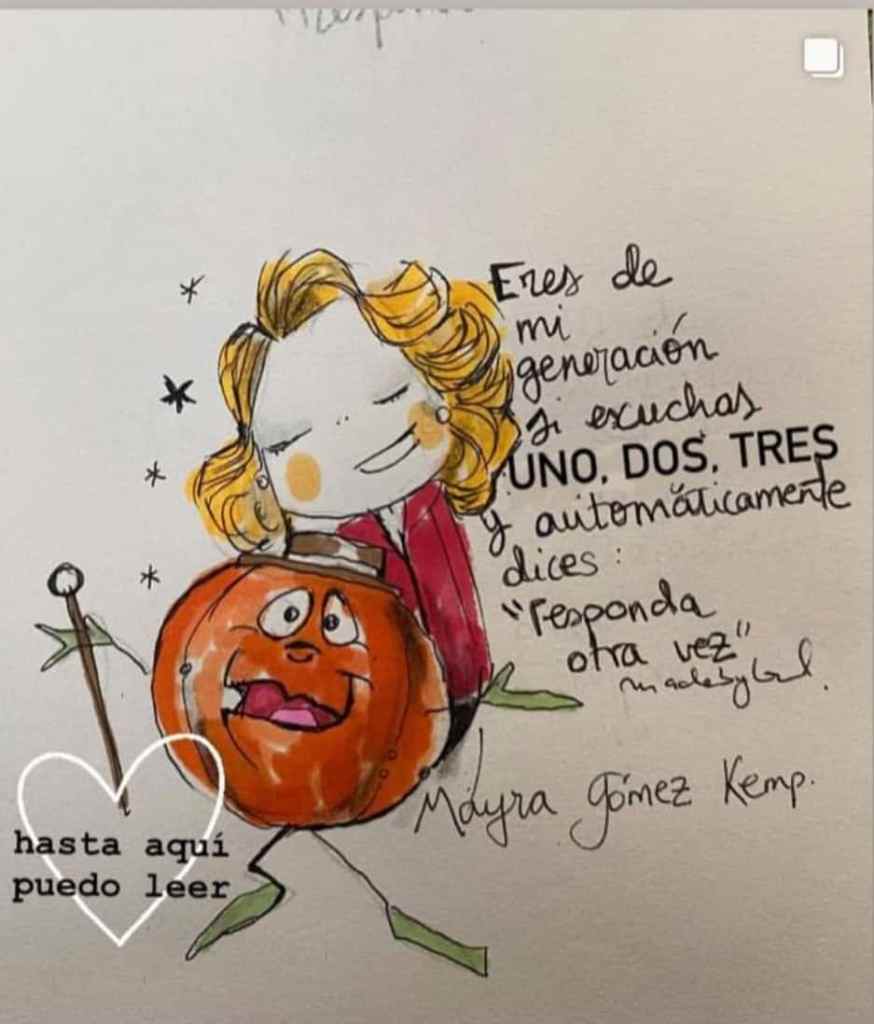 Eres de
mi
generación
si escuchas
UNO, DOS, TRES
y automáticamente
dices:
"responda
otra vez"
Mayra Gómez Kemp.
hasta aquí
puedo leer